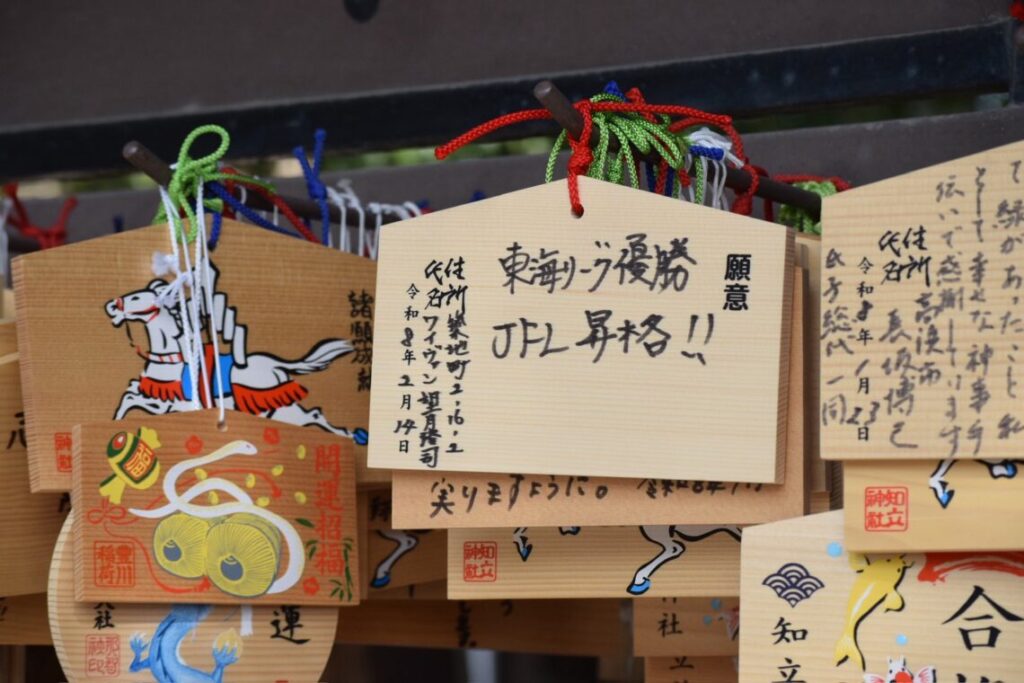 願意
東海リーグ優勝
JFL 昇格!!
令和8年2月14日
住所 築地町2.16.2
氏名 ワイヴァン 望月隆司
諸願成就
開運招福
福
豊川稲荷
実りますように。
知立神社
知立神社
て縁があったこと私
として幸せな神事手
伝いで感謝しています
住所 高浜市
氏名
令和8年1月23日
氏子総代一同
知立
合
運
社